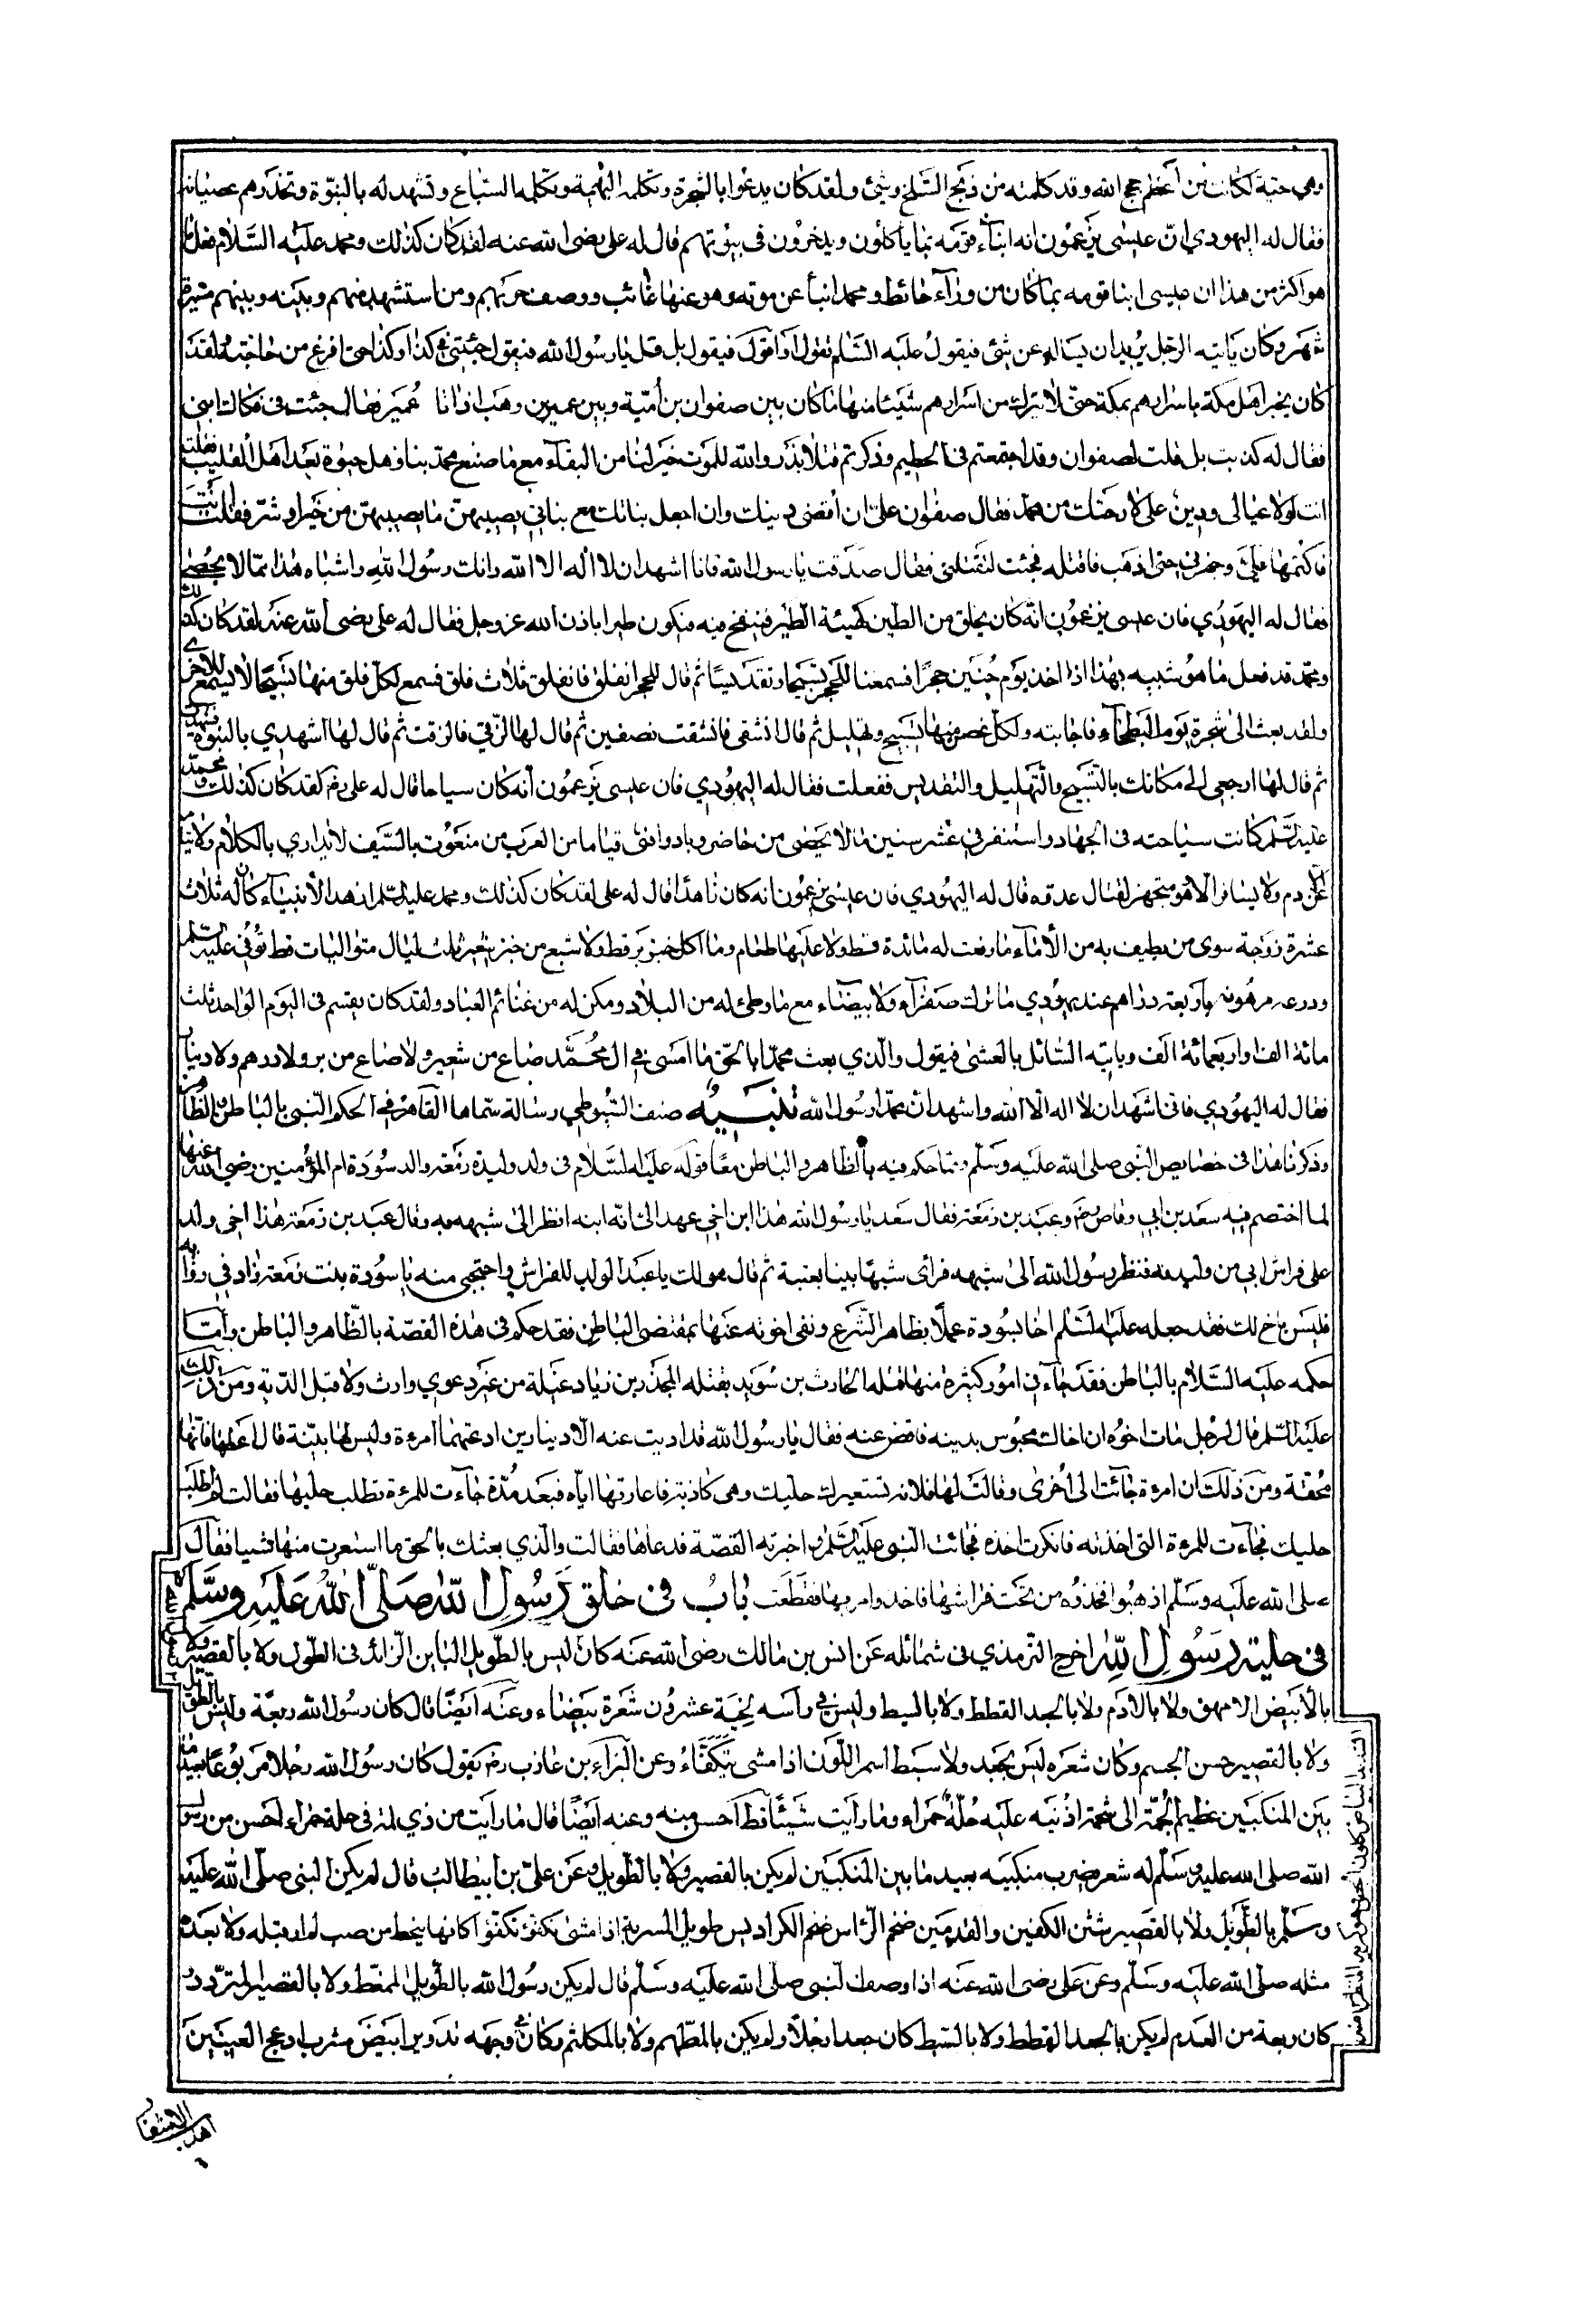 وهي حتية لكانت من أعظم حجج الله وقد كلمته من ذبح السلخ وشئ ولقد كان يدعوا بالشجرة وتكلمه البهيمة وتكلمه السباع وتشهد له بالنبوة وتحذرهم عصيانه
فقال له اليهودي ان عيسى يزعمون انه انبآء قومه بما يأكلون ويدخرون في بيوتهم قال له على رضى الله عنه لقد كان كذلك ومحمد عليه السلام فعل ما
هو اكثر من هذا ان عيسى انبا قومه بما كان من ورآء حائط ومحمد انبأ عن موته وهو عنها غائب ووصف حربهم ومن استشهد منهم وبينه وبينهم مسيرة
شهر وكان يأتيه الرجل يريدان يساله عن شئ فيقول عليه السلام تقول او اقول فيقول بل قل يا رسول الله فيقول جئتني في كذا وكذا حتى افرغ من حاجته ولقد
كان يخبر اهل مكة باسرارهم بمكة حتى لا يترك من اسرارهم شيئا منها ما كان بين صفوان بن أمية وبين عمير بن وهب اذ اتا عمير فقال جئت في فكاك ابنى
فقال له كذبت بل قلت لصفوان وقد اجتمعتم في الحطيم وذكرتم قتلا بدر والله للموت خير لنا من البقآء مع ما صنع محمد بنا وهل حيوة بعد اهل القليب فقلت
انت لولا عيالى ودين على لارحتك من محمد فقال صفوان على ان أقضى دينك وان اجعل بناتك مع بناتي يصيبهن ما يصيبهن من خير او شر فقلت أنت
فاكتمها على وجهزني حتى اذهب فاقتله فجئت لتقتلنى فقال صدقت يا رسول الله فانا اشهدان لا اله الا الله وانك رسول الله واشباه هذا مما لا يحصى
فقال له اليهودي فان عيسى يزعمون انه كان يخلق من الطين كهيئة الطير فينفخ فيه فيكون طيرا باذن الله عز وجل فقال له على رضى الله عنه لقد كان كذلك
ومحمد قد فعل ما هو شبيه بهذا اذ اخذ يوم حنين حجرا فسمعنا للحجر تسبيحا وتقديسا ثم قال للحجر انفلق فانفلق ثلاث فلق فسمع لكل فلق منها تسبيحا لا يسمع للاخرى
ولقد بعث الى شجرة يوم البطحآء فاجابته ولكل غصن منها تسبيح وتهليل ثم قال انشقى فانشقت نصفين ثم قال لها الزقي فالزقت ثم قال لها اشهدي بالنبوة فشهدت
ثم قال لها ارجعى الى مكانك بالتسبيح والتهليل والتقديس ففعلت فقال له اليهودي فان عيسى يزعمون أنه كان سياحا قال له على رضه لقد كان كذلك ومحمد
عليه السلام كانت سياحته في الجهاد واستنفر في عشر سنين ما لا يحصى من حاضر وباد وافنى فياما من العرب من منعوت بالسيف لا يداري بالكلام ولا ينام
الا عن دم ولا يسافر الا هو متجهز لقتال عدوه قال له اليهودي فان عيسى يزعمون انه كان زاهدا قال له على لقد كان كذلك ومحمد عليه السلم ازهد الأنبيآء كان له ثلاث
عشرة زوجة سوى من يطيف به من الأمآء ما رفعت له مائدة قط ولا عليها طعام وما اكل خبز بر قط ولا شبع من خبز شعير ثلث ليال متواليات قط توفي عليه السلم
ودرعه مرهونه باربعة دراهم عند يهودي ما ترك صفرآء ولا بيضاء مع ما وطئ له من البلاد ومكن له من غنائم العباد ولقد كان يقسم في اليوم الواحد ثلث
مائة الف واربعمائة الف وياتيه السائل بالعشى فيقول والذي بعث محمدا بالحق ما امسى في ال محمد صاع من شعير ولا صاع من بر ولا درهم ولا دينار
فقال له اليهودي فانى اشهدان لا اله الا الله واشهد ان محمدا رسول الله تنبيه صنف السيوطي رسالة سماها الباهر في الحكم النبى بالباطن والظاهر
وذكرنا هذا في خصايص النبى صلى الله عليه وسلم ومما حكم فيه بالظاهر والباطن معا قوله عليه السلام في ولد وليدة زمعة والد سودة ام المؤمنين رضي الله عنها
لما اختصم فيه سعد بن ابي وقاص رضه وعبد بن زمعة فقال سعد يا رسول الله هذا ابن اخي عهد الى انه ابنه انظر الى شبهه به وقال عبد بن زمعة هذا اخي ولد
على فراش ابي من وليدته فنظر رسول الله الى شبهه فرأى شبها بينا بعتبة ثم قال هو لك يا عبد الولد للفراش واحتجبى منه يا سودة بنت زمعة زاد في رواية
فليس باخ لك فقد جعله عليه السلم اخا لسودة عملا بظاهر الشرع ونفى اخوته عنها بمقتضى الباطن فقد حكم في هذه القصة بالظاهر والباطن واما
حكمه عليه السلام بالباطن فقد جاء في امور كثيرة منها قتله الحارث بن سويد بقتله المجذر بن زياد غيلة من غير دعوي وارث ولا قبل الدية ومن ذلك
عليه السلم قال لرجل مات اخوه ان اخاك محبوس بدينه فاقض عنه فقال يا رسول الله قد اديت عنه الا دينارين ادعتهما امرءة وليس لها بينة قال اعطها فانها
محقة ومن ذلك ان امرءة جآئت الى اخرى وقالت لها فلانه تستعيرك حليك وهى كاذبة فاعارتها اياه فبعد مدة جاءت للمرءة تطلب حليها فقالت لم اطلب
حليك فجاءت للمرءة التى اخذته فانكرت اخذه فجائت النبى عليه السلم واخبرته القصة فدعاها فقالت والذي بعثك بالحق ما استعرت منها شيا فقال
صلى الله عليه وسلم اذهبوا فخذوه من تحت فراشها فاخذ وامر بها فقطعت باب في خلق رسول الله صلى الله عليه وسلم
في حلية رسول الله اخرج الترمذي في شمائله عن انس بن مالك رضى الله عنه كان ليس بالطويل الباين الزائد في الطول ولا بالقصير ولا
بالأبيض الامهق ولا بالادم ولا بالجعد القطط ولا بالسبط وليس في رأسه ولحية عشرون شعرة بيضاء وعنه ايضا قال كان رسول الله ربعة وليس بالطويل
ولا بالقصير حسن الجسم وكان شعره ليس بجعد ولا سبط اسمر اللون اذا مشى يتكفاء وعن البراء بن عازب رضه يقول كان رسول الله رجلا مربوعا بعيد ما
بين المنكبين عظيم الجمة الى شحمة اذنيه عليه حلة حمراء وما رايت شيئا قط احسن منه وعنه ايضا قال ما رايت من ذي لمة في حلة حمراء احسن من رسول
الله صلى الله عليه وسلم له شعر يضرب منكبيه بعيد ما بين المنكبين لم يكن بالقصير ولا بالطويل وعن على بن ابيطالب قال لم يكن النبى صلى الله عليه
وسلم بالطويل ولا بالقصير شثن الكفين والقدمين ضخم الرأس ضخم الكراديس طويل المسربة اذا مشى تكفؤ تكفؤا كانما ينحط من صبب لم ار قبله ولا بعده
مثله صلى الله عليه وسلم وعن على رضى الله عنه اذا وصف النبى صلى الله عليه وسلم قال لم يكن رسول الله بالطويل الممغط ولا بالقصير المتردد
كان ربعة من القدم لم يكن بالجعد القطط ولا بالسبط كان جعدا رجلا ولم يكن بالمطهم ولا بالمكلثم وكان في وجهه تدوير ابيض مشرب ادعج العينين